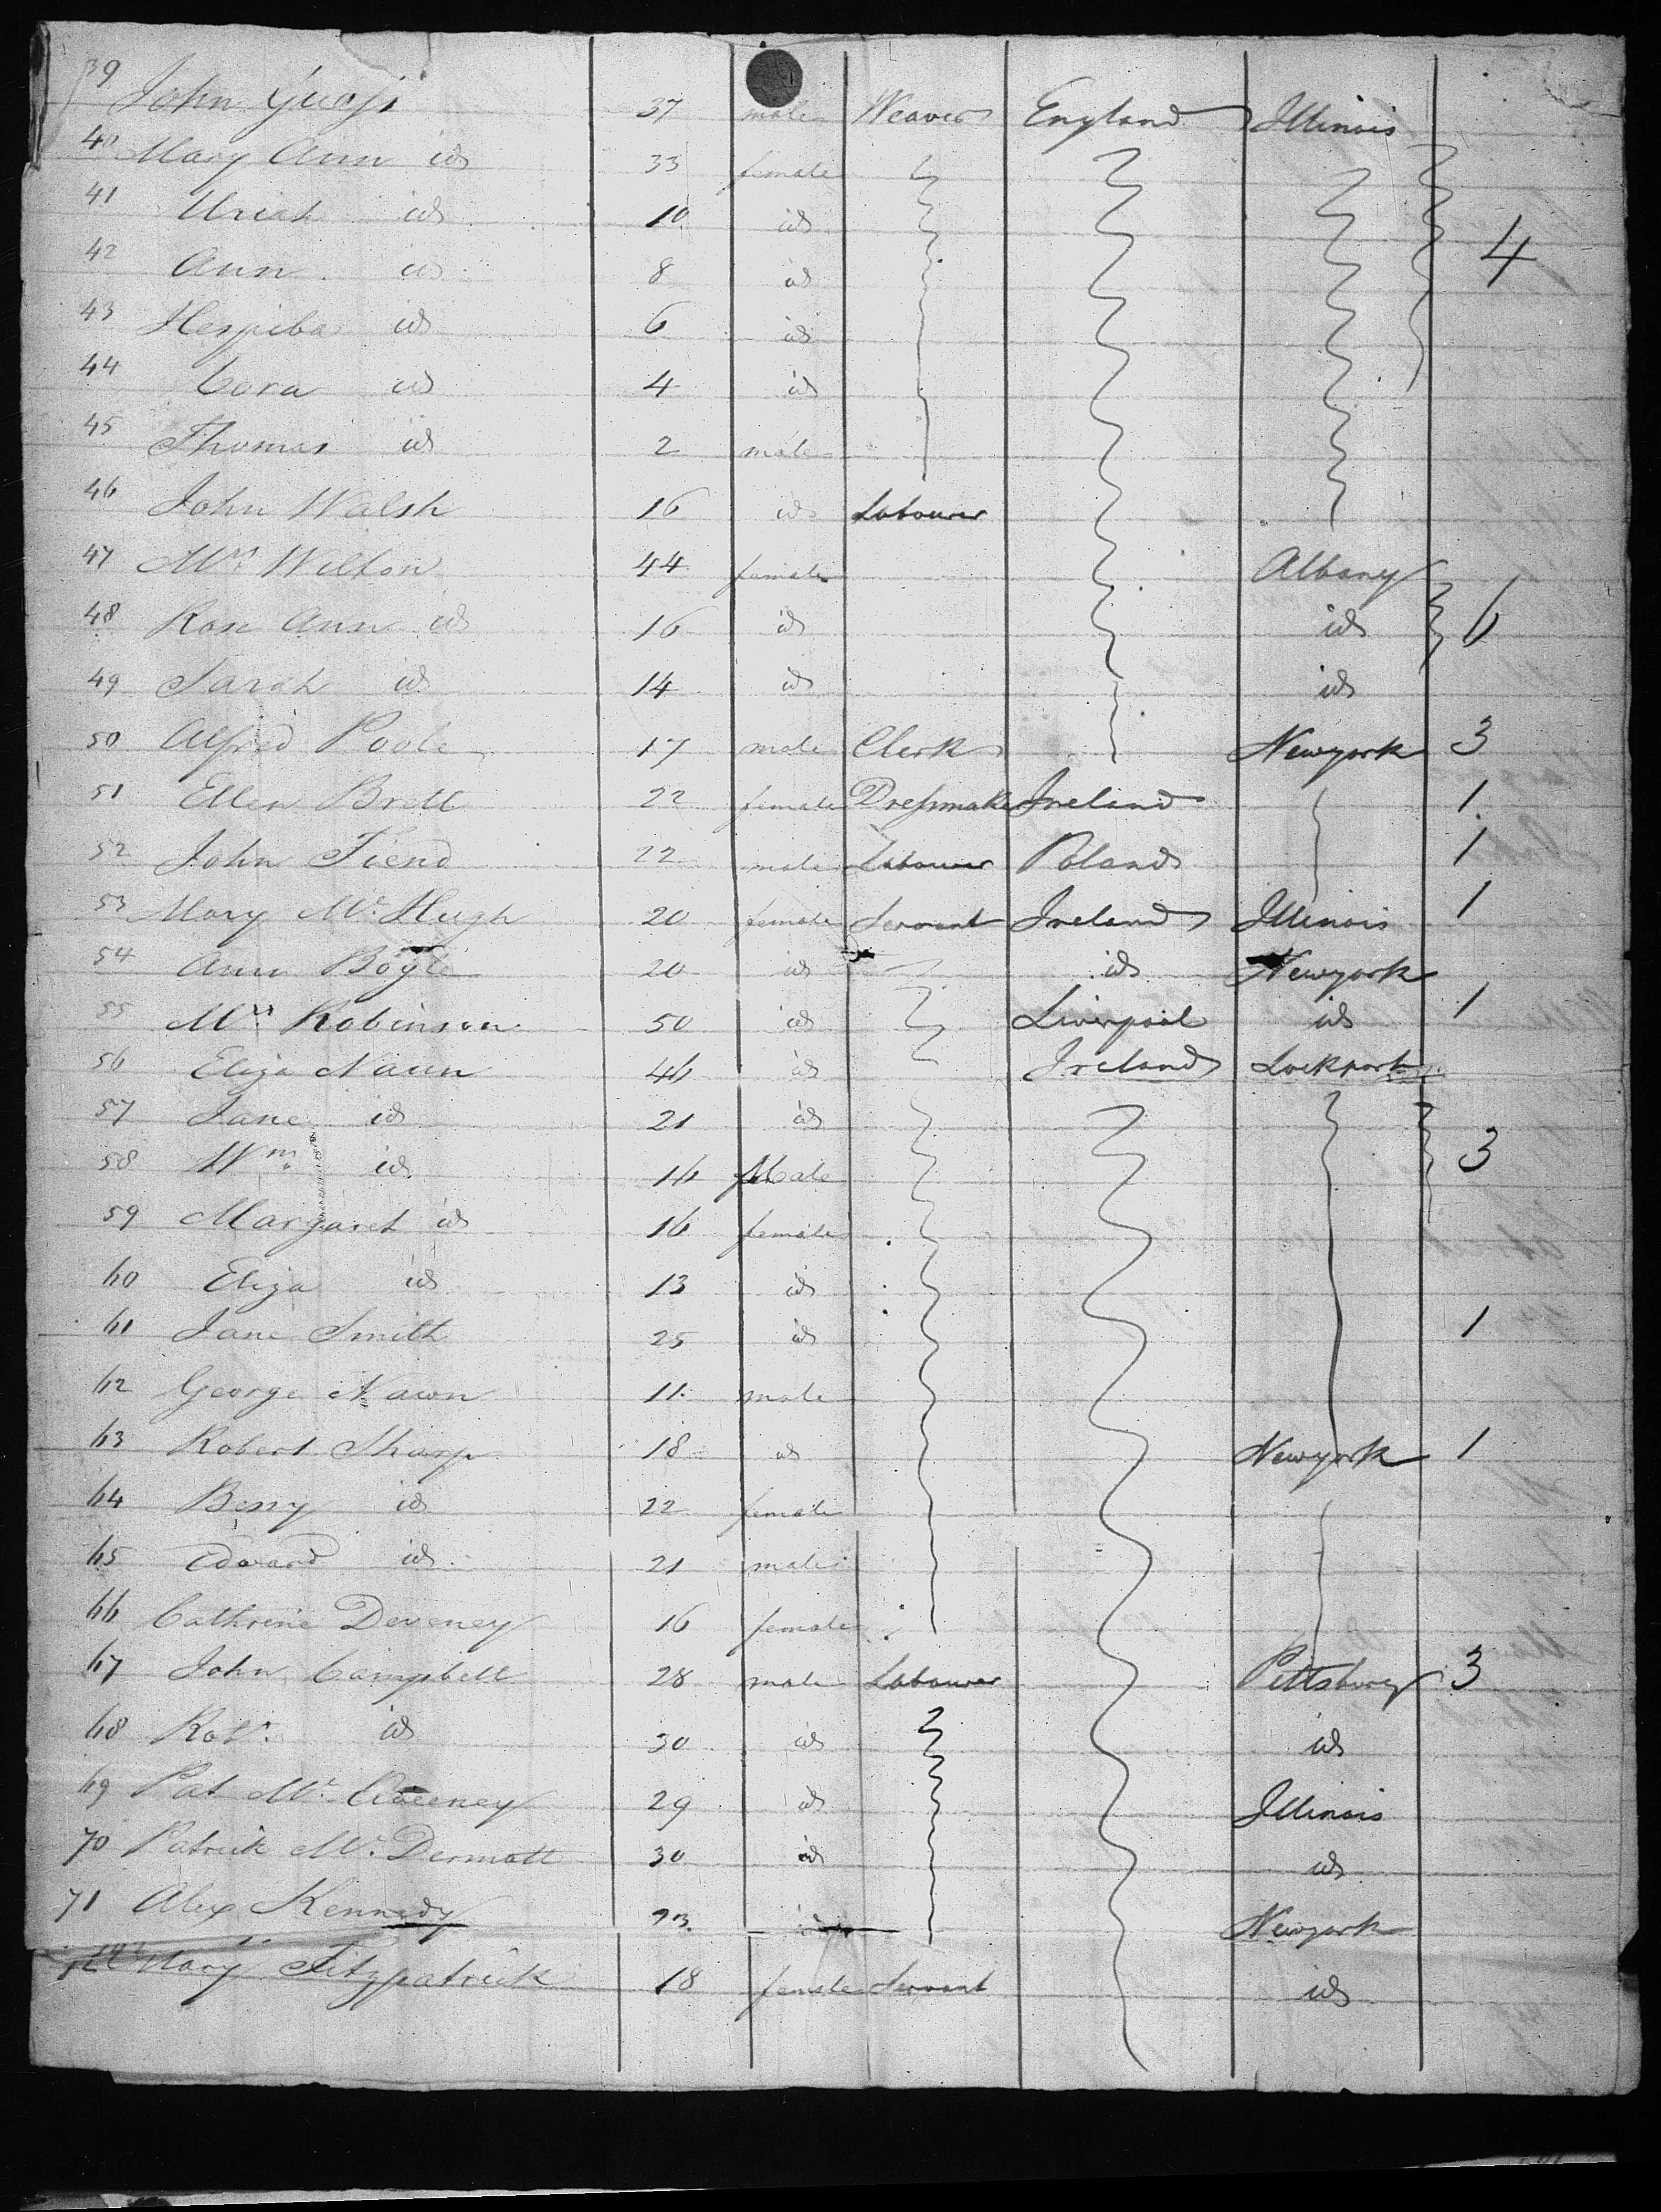 39 John 37 male Weaver England Illinois
40 Mary Ann id 33 female
41 Uriah id 10 id 4
42 Ann id 8 id
43 Hespiba id 6 id
44 Cora id 4 id
45 Thomas id 2 male
46 John Walsh 16 id Labourer
47 Mrs Wilton 44 female Albany
48 Rose Ann id 16 id id 6
49 Sarah id 14 id id
50 Alfred Poole 17 male Clerk Newyork 3
51 Ellen Brett 22 female Dressmaker Ireland 1
52 John Fiend 22 male Labourer Poland 1
53 Mary McHugh 20 female Servant Ireland Illinois 1
54 Ann Boyle 20 id id Newyork
55 Mrs Robinson 50 id Liverpool id 1
56 Eliza Naun 46 id Ireland Lockport
57 Jane id 21 id
58 Wm id 16 Male 3
59 Margaret id 16 female
60 Eliza id 13 id
61 Jane Smith 25 id 1
62 George Nawn 11 male
63 Robert Sharp 18 id Newyork 1
64 Bessy id 22 female
65 Edward id 21 male
66 Cathrine Deveney 16 female
67 John Campbell 28 male Labourer Pittsburg 3
68 Robt. id 30 id id
69 Pat Mc 29 id Illinois
70 Patrick McDermott 30 id id
71 Alex Kennedy 23 Newyork
72 Mary Fitzpatrick 18 female Servant id